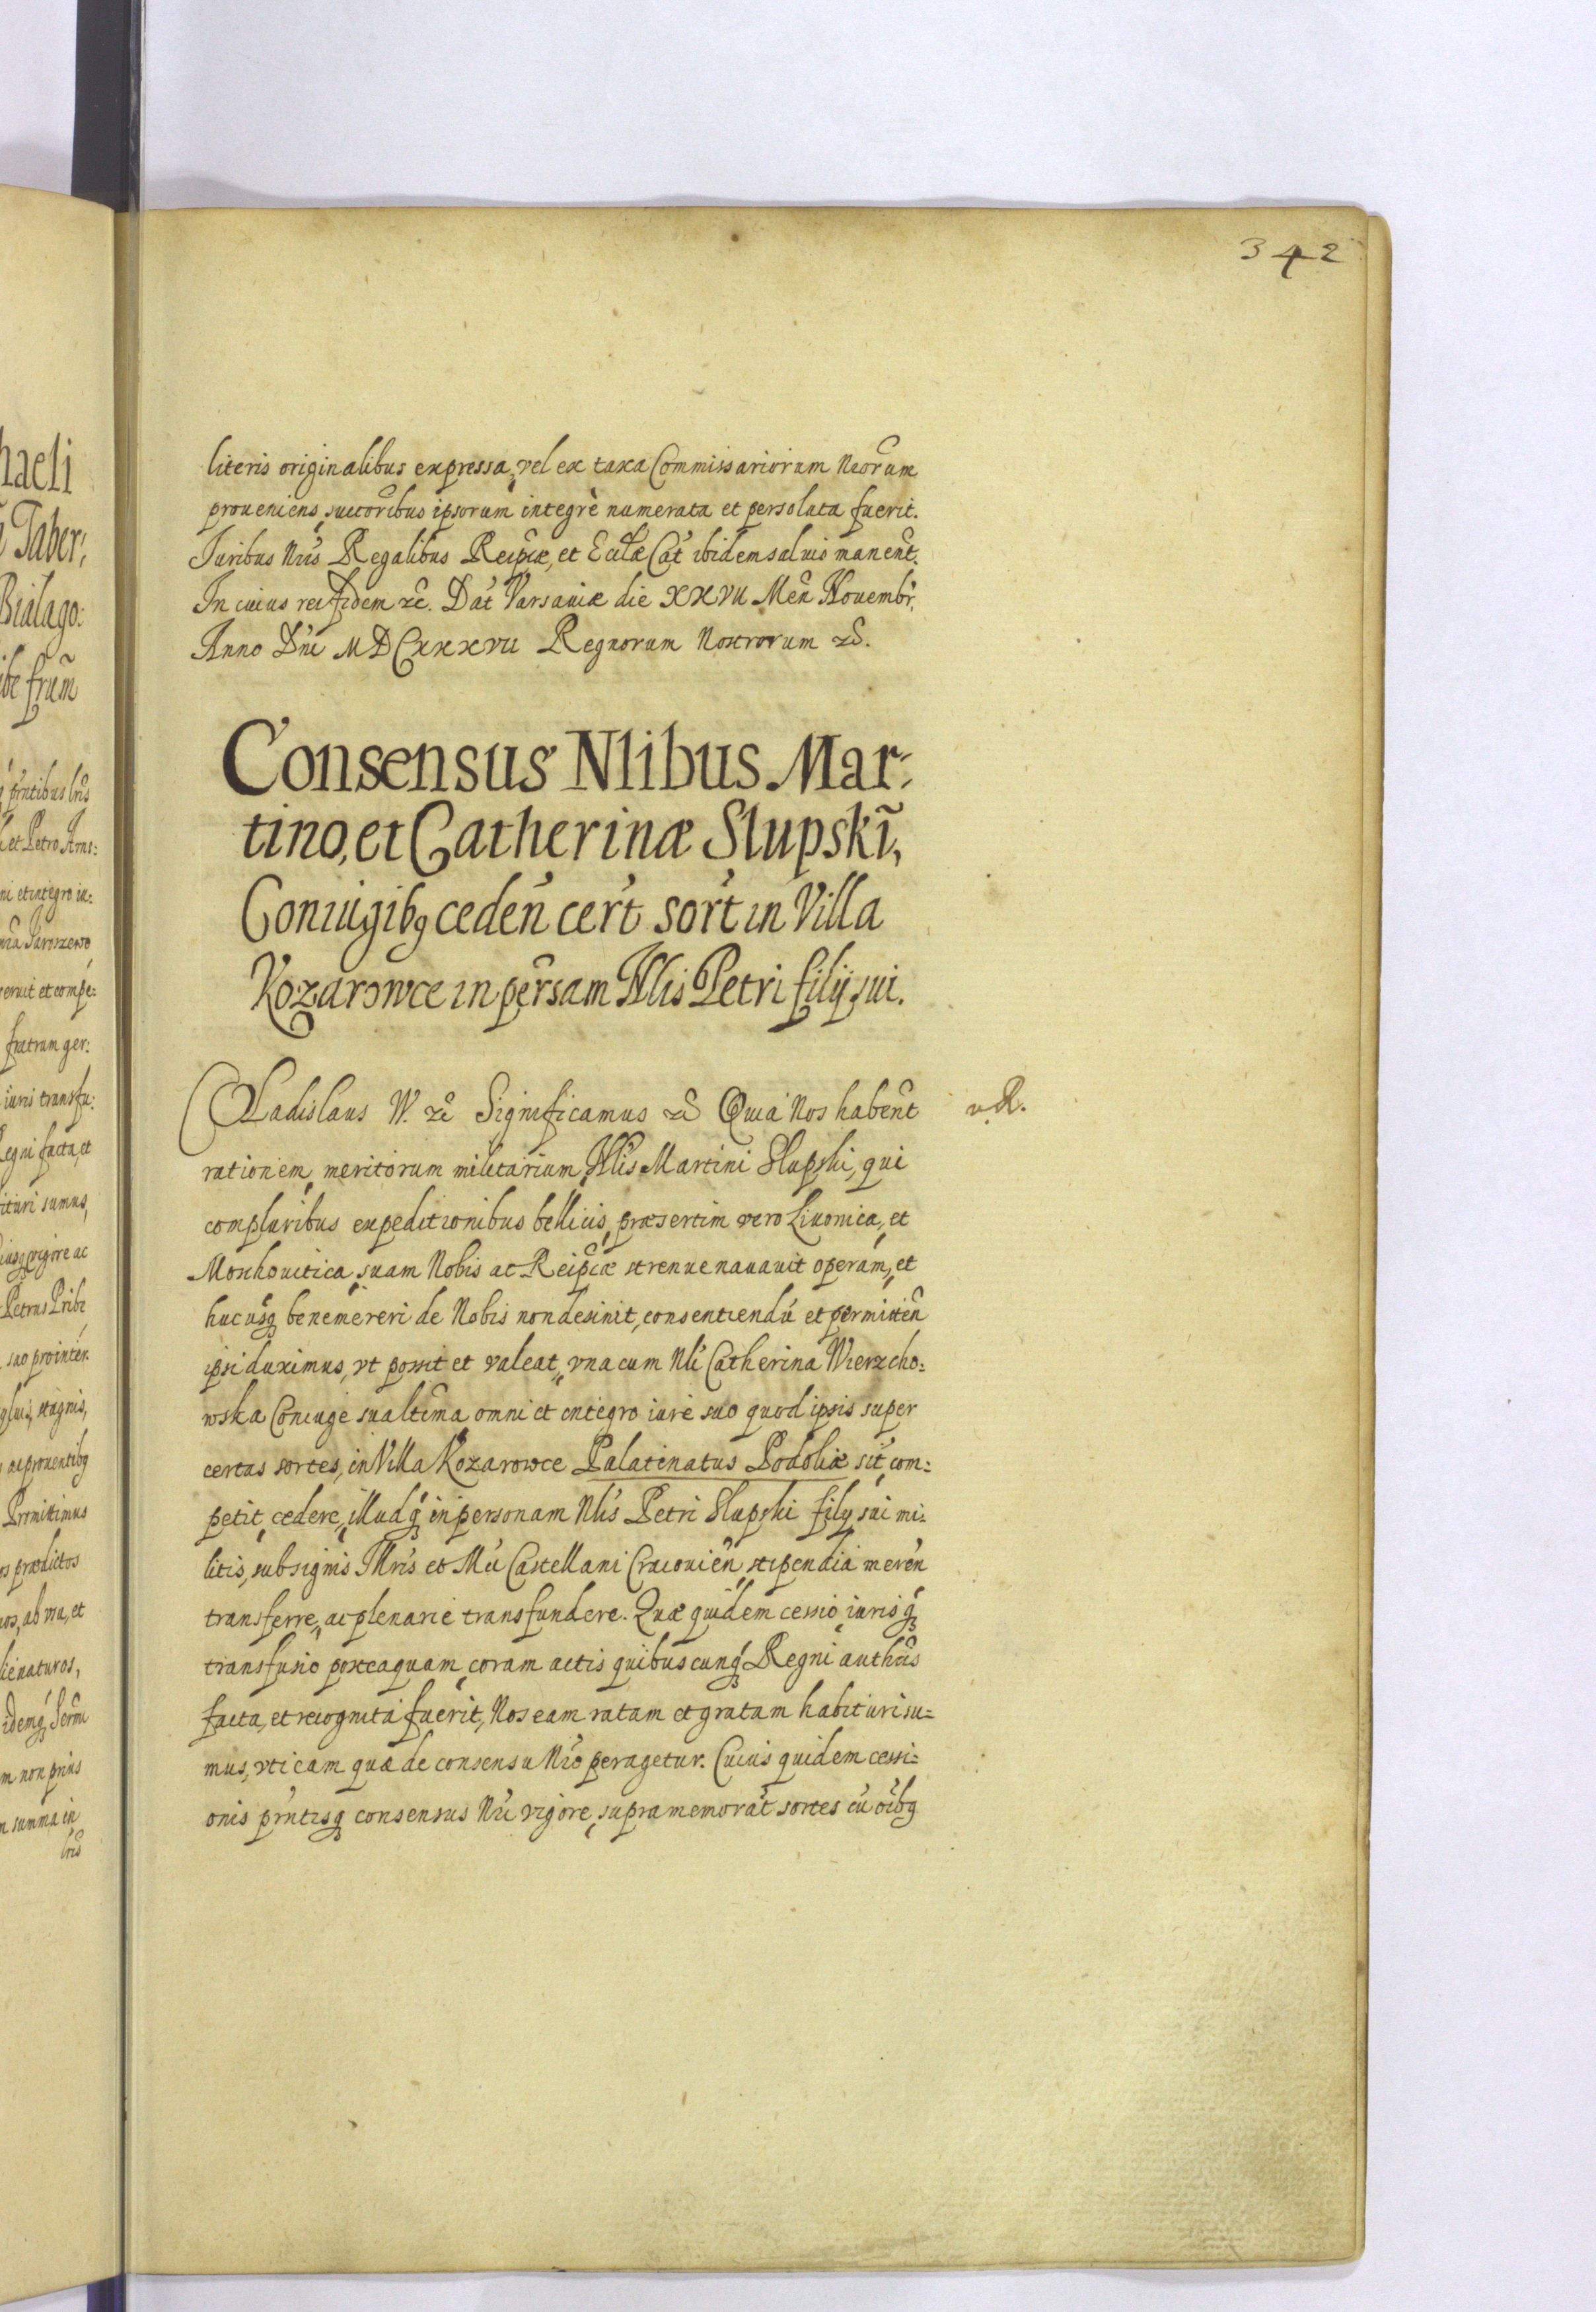 342
literis originalibus expressa, vel ex taxa Commissariorum Nrorum
proueniens, succoribus ipsorum integrè numerata et persoluta fuerit.
Iuribus Nris Regalibus Reipcæ, et Ecclæ Cat ibidem saluis manent.
In cuius rei fidem etc. Dat Varsauiæ die XXVII Men Nouembr,
Anno Dni MDCXXXVII Regnorum Nostrorum etc.
Consensus Nlibus Mar:
tino, et Catherinæ Slupski,
Coniugibq ceden cert sort in Villa
Kozarowce in persam Nlis Petri filij sui.
Vladislaus W. etc Significamus etc Quia Nos habent
v. R.
rationem, meritorum militarium, Nlis Martini Slupski, qui
compluribus expeditionibus bellicis, præsertim vero Liuonica, et
Moschouitica, suam Nobis ac Reipcæ strenue nauauit operam, et
hucusq benemereri de Nobis non desinit, consentiendũ et permitten
ipsi duximus, vt possit et valeat, vna cum Nli Catherina Wierzcho:
wska Coniuge sua ltima omni et integro iure suo quod ipsis super
certas sortes, in Villa Kozarowce Palatinatus Podoliæ sit, com:
petit, cedere, illudq in personam Nlis Petri Slupski filij sui mi:
litis, sub signis Illris et Mci Castellani Cracouien, stipendia meren
transferre, ac plenarie transfundere. Quæ quidem cessio, iurisq
transfusio posteaquam, coram actis quibuscunq Regni authcis
facta, et recognita fuerit, Nos eam ratam et gratam habituri su=
mus, vti eam quæ de consensu Nro peragetur. Cuius quidem cessi:
onis prntisq consensus Nri vigore, supramemorat sortes cũ oibq